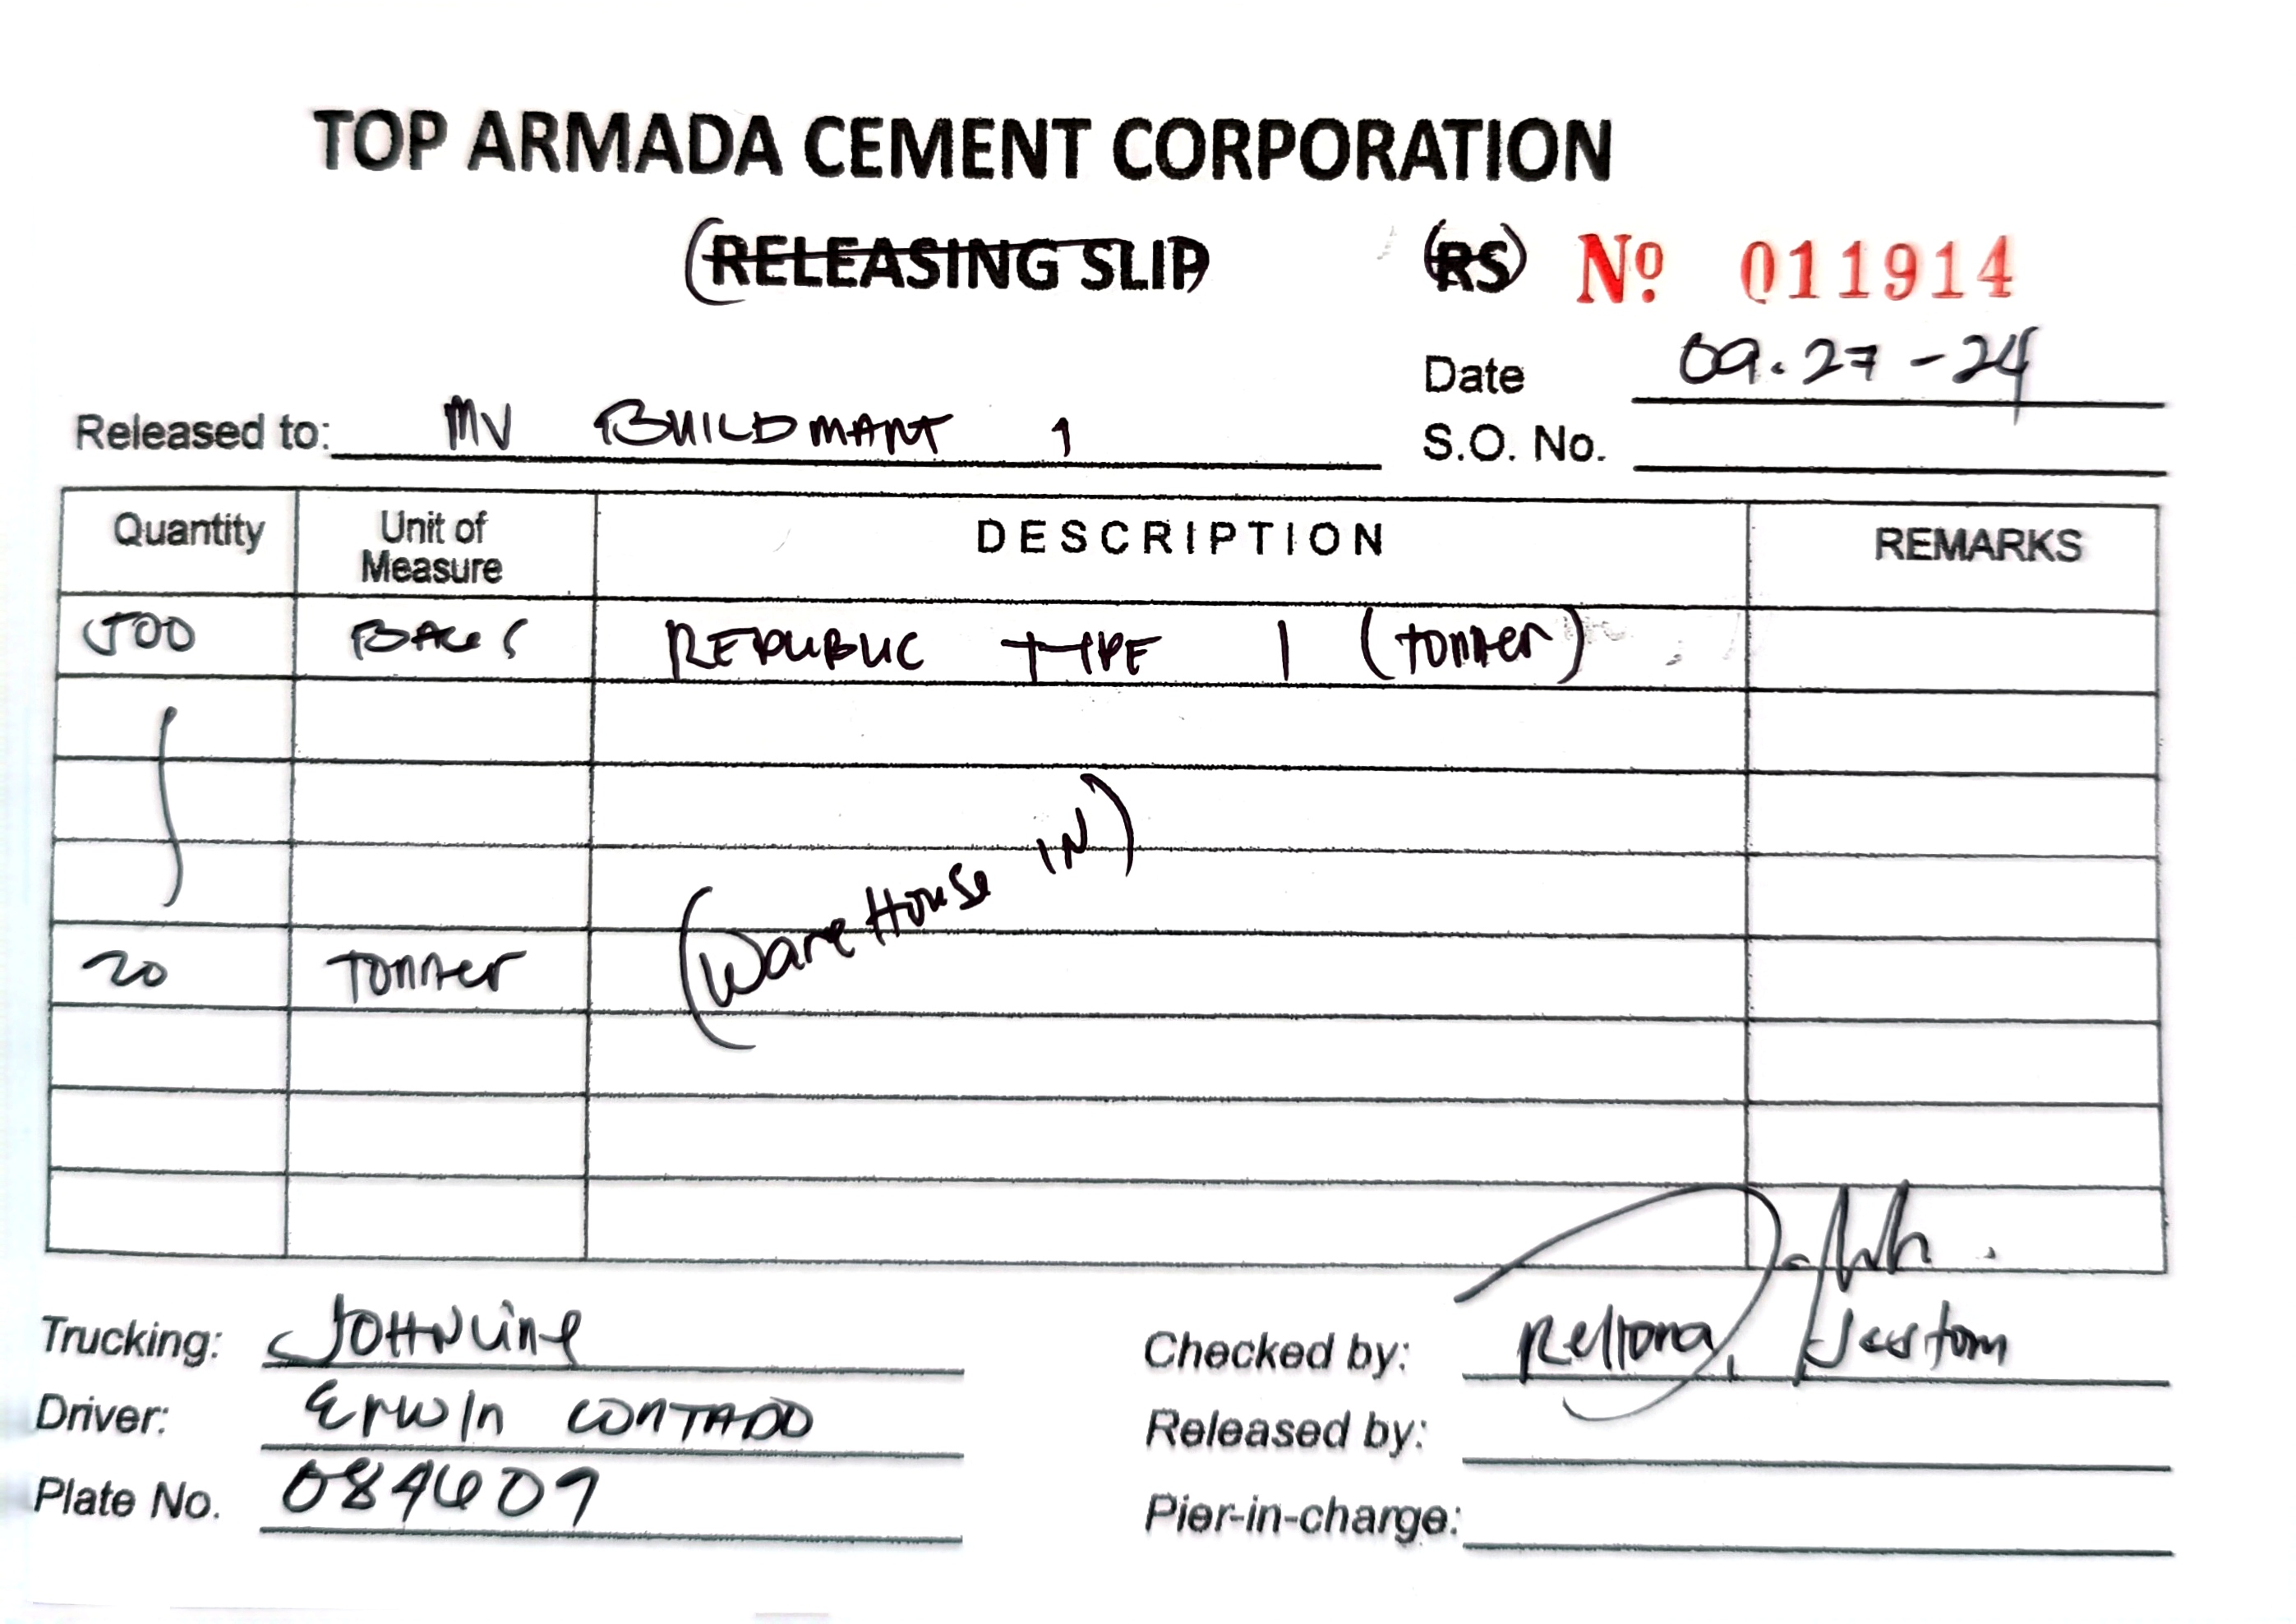 TOP ARMADA CEMENT CORPORATION
(RELEASING SLIP) (RS) Nº 011914
Date 09.27-24
Released to: MV BUILDMART 1
S.O. No.
Quantity Unit of Measure DESCRIPTION REMARKS
500 BAGS REPUBLIC TYPE 1 (Tonner)
(WareHouse IN)
20 Tonner
Trucking: JOHNLine
Driver: Erwin CONTADO
Plate No.
Checked by:
Released by:
Pier-in-charge: